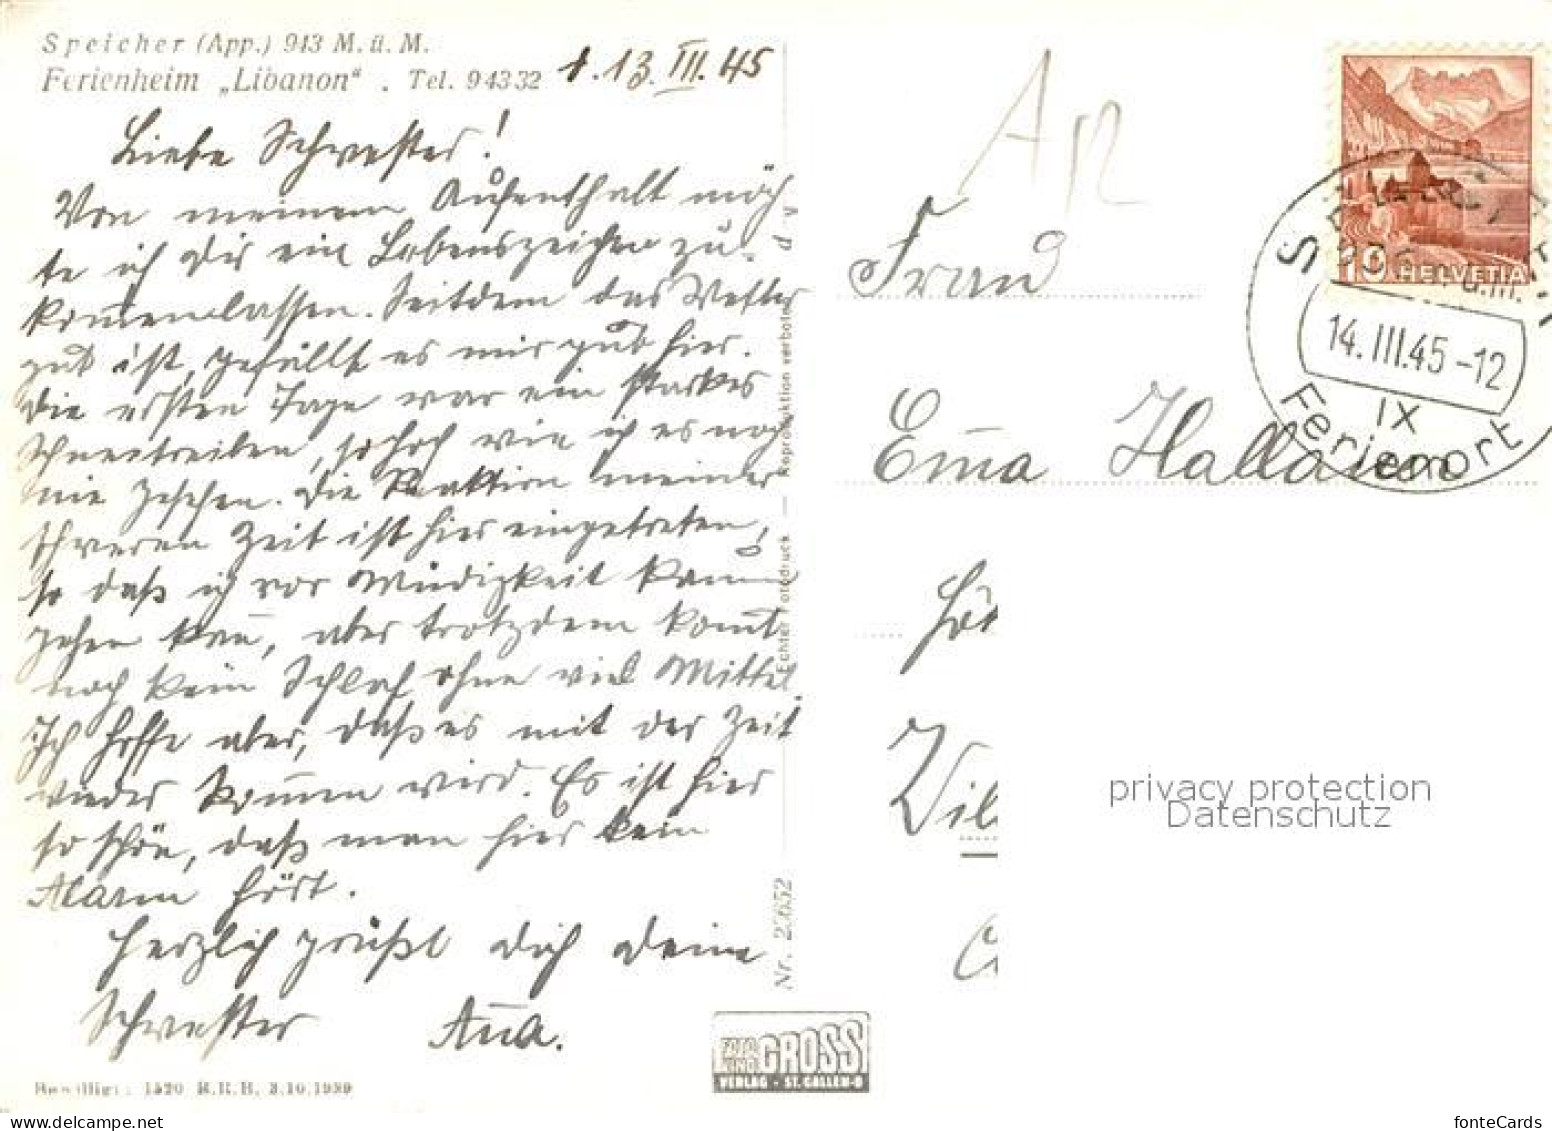 Speicher (App.) 943 M. ü. M.
Ferienheim „Libanon“ . Tel. 94332
13. III. 45
Liebe Schwester!
Von meinem Aufenthalt möch-
te ich Dir ein Lebenszeichen zu-
kom̅enlassen. Seitdem das Wetter
gut ist, gefällt es mir gut hier.
Die ersten Tage war ein starkes
Schneetreiben, so hoch wie ich es noch
nie gesehen. Die Reaktion meiner
schweren Zeit ist hier eingetreten,
so daß ich vor Müdigkeit kaum
gehen kan̅, aber trotzdem kom̅t
noch kein Schlaf ohne viel Mittel.
Ich hoffe aber, daß es mit der Zeit
wieder kom̅en wird. Es ist hier
so schön, daß man hier kein
Alarm hört.
Herzlich grüßt dich deine
Schwester An̅a.
Bewilligt: 1520 B.R.B. 3.10.1939
Nr. 23652
Echter Fotodruck — Reproduktion verboten
FOTO
KINO
GROSS
VERLAG - ST. GALLEN-O
Frau
Em̅a
HELVETIA
10
14.III.45-12
IX
Ferienort
privacy protection
Datenschutz
fonteCards